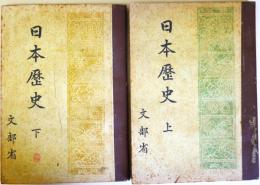 日本歴史
上
文部省
日本歴史
下
文部省